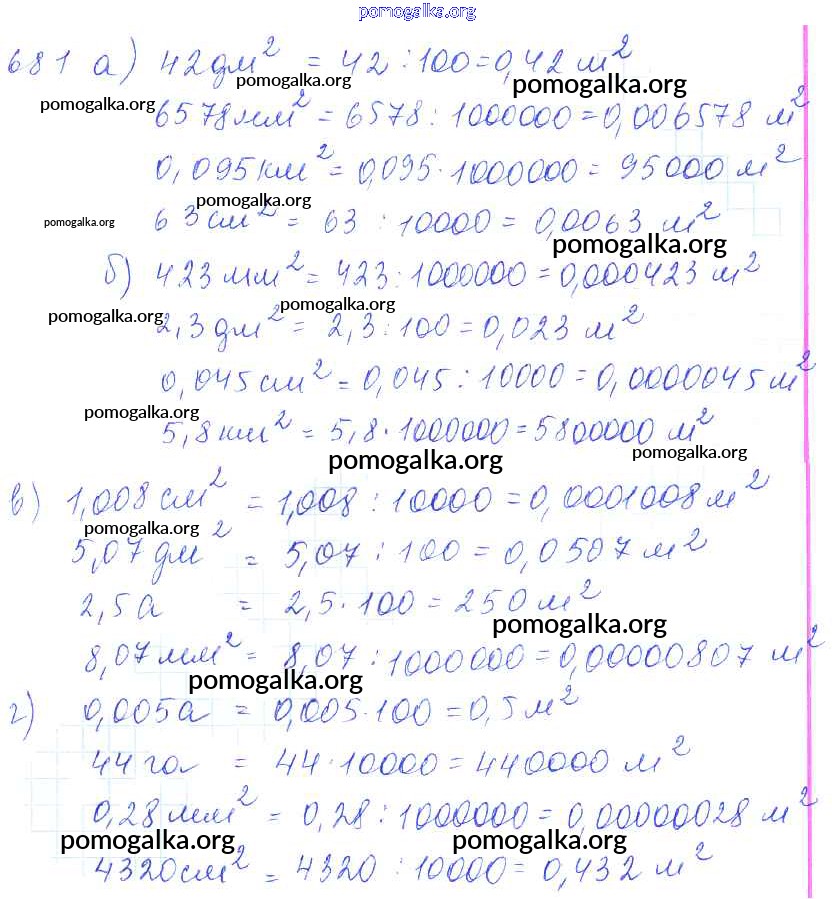 pomogalka.org
681 а) 42дм² = 42 : 100 = 0,42 м²
pomogalka.org pomogalka.org
pomogalka.org
6578мм² = 6578 : 1000000 = 0,006578 м²
0,095км² = 0,095 · 1000000 = 95000 м²
pomogalka.org
pomogalka.org
63см² = 63 : 10000 = 0,0063 м²
pomogalka.org
б) 423мм² = 423 : 1000000 = 0,000423 м²
pomogalka.org pomogalka.org
2,3дм² = 2,3 : 100 = 0,023 м²
0,045см² = 0,045 : 10000 = 0,0000045 м²
pomogalka.org
5,8км² = 5,8 · 1000000 = 5800000 м²
pomogalka.org pomogalka.org
в) 1,008см² = 1,008 : 10000 = 0,0001008 м²
pomogalka.org
5,07дм² = 5,07 : 100 = 0,0507 м²
2,5а = 2,5 · 100 = 250 м²
pomogalka.org
8,07мм² = 8,07 : 1000000 = 0,00000807 м²
pomogalka.org
г) 0,005а = 0,005 · 100 = 0,5 м²
44га = 44 · 10000 = 440000 м²
0,28мм² = 0,28 : 1000000 = 0,00000028 м²
pomogalka.org pomogalka.org
4320см² = 4320 : 10000 = 0,432 м²